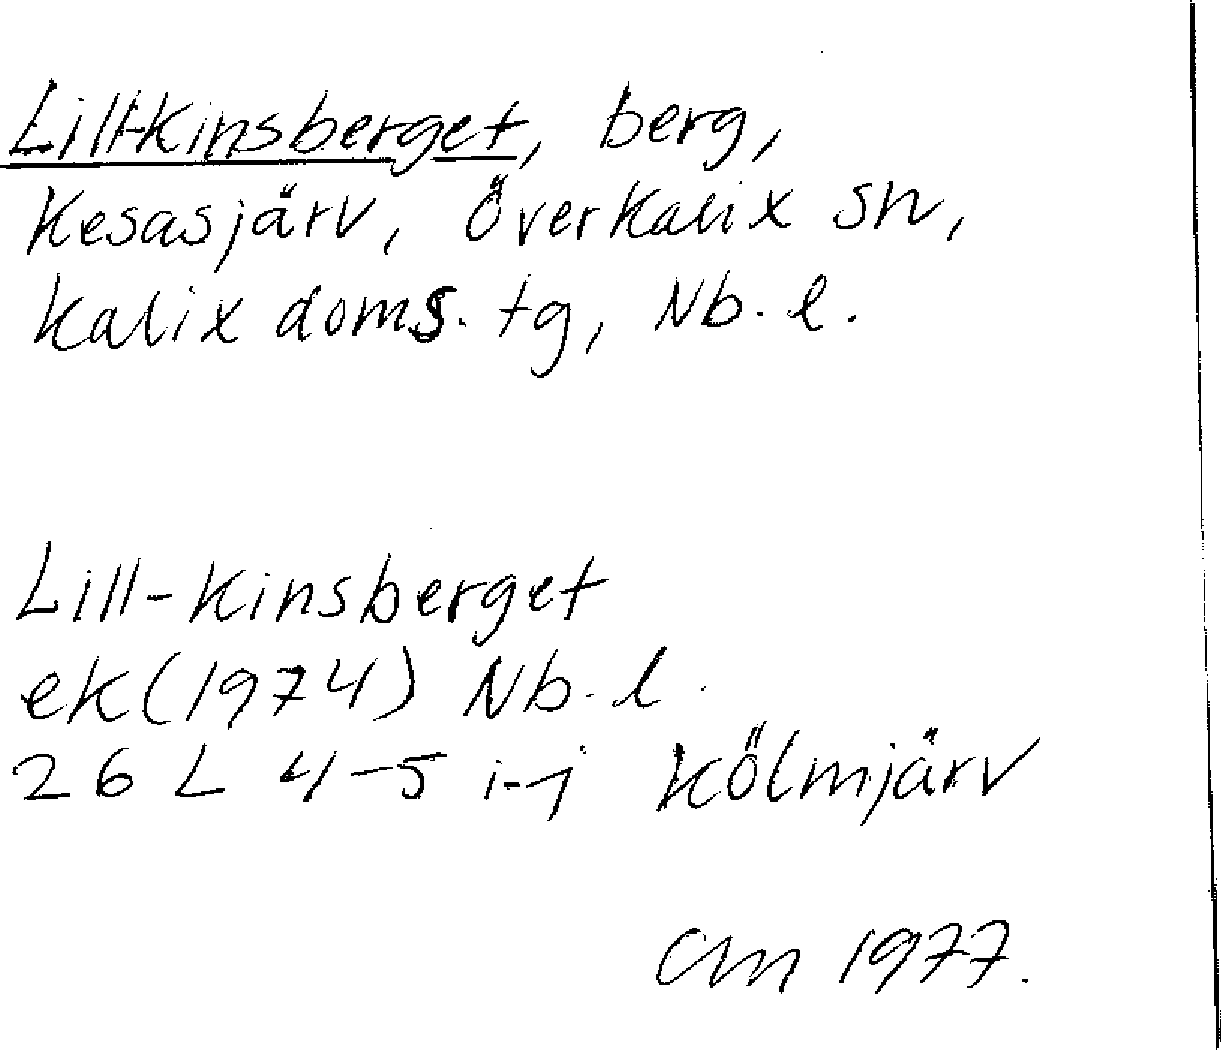 Lill-Kinsberget, berg,
Kesasjärv, Överkalix sn,
Kalix doms. tg, Nb. l.
Lill-Kinsberget
ek (1974) Nb. l.
26 L 4-5 i-j Kölmjärv
CM 1977.